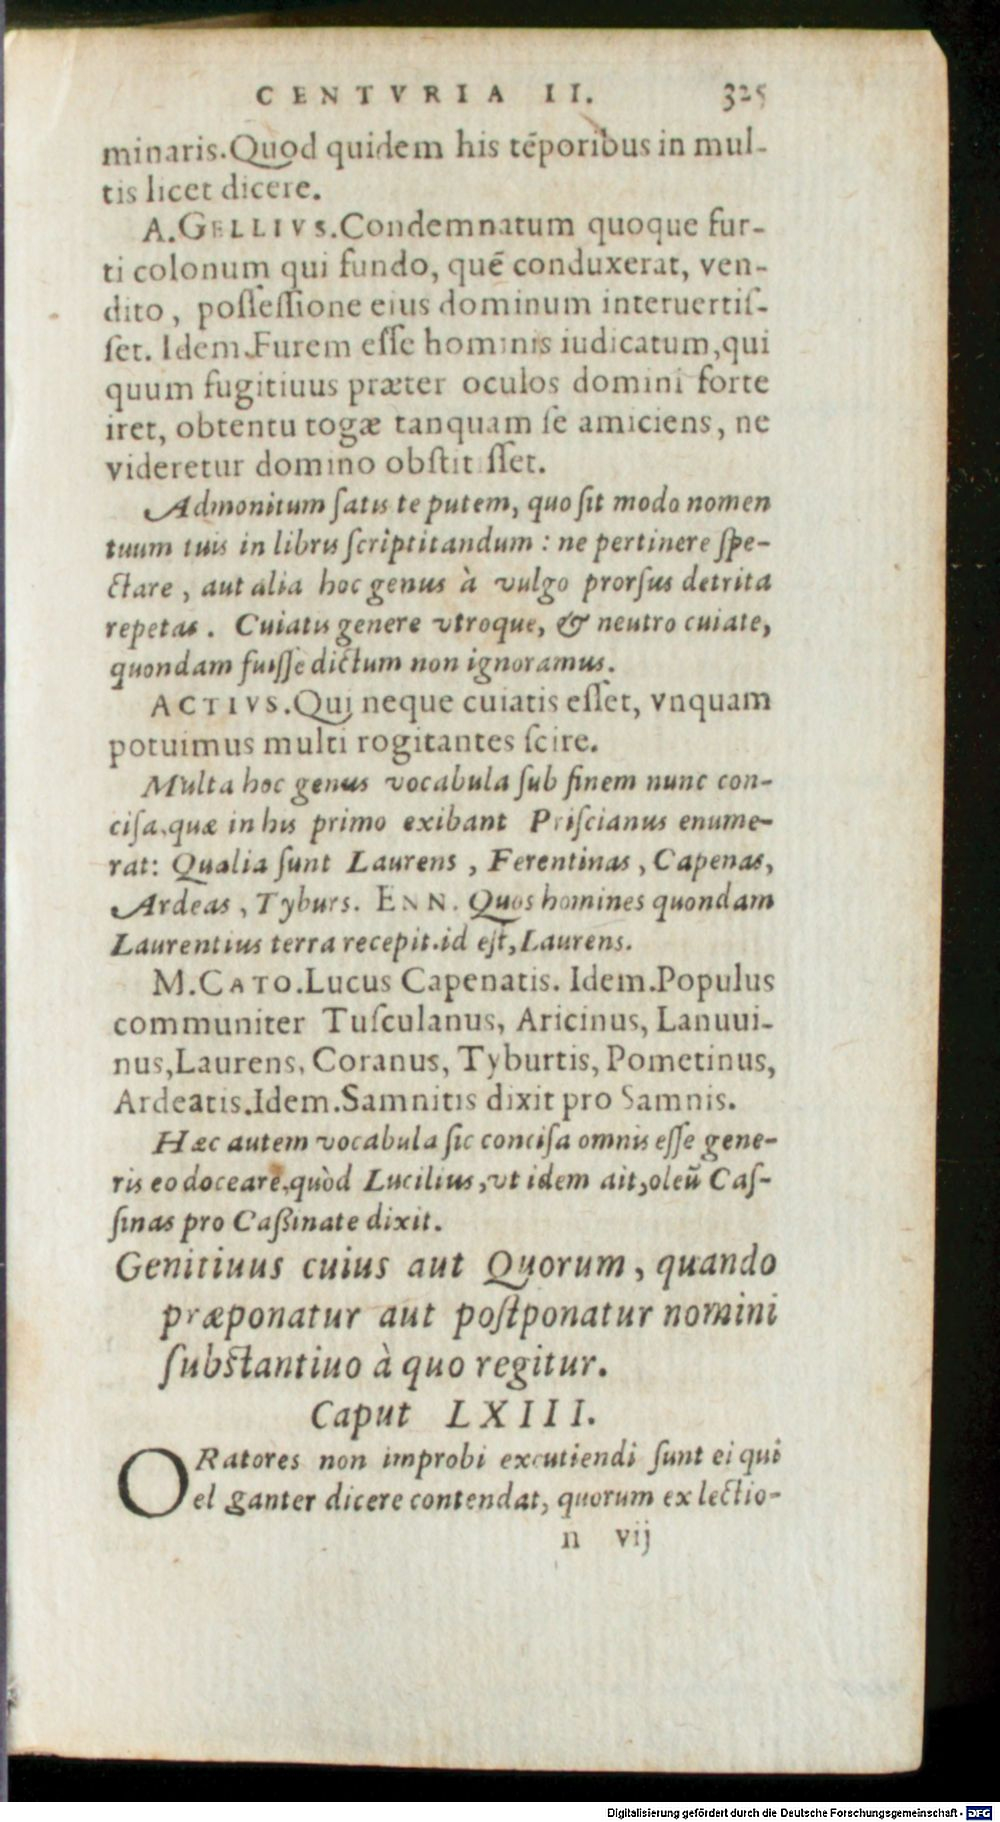 CENTVRIA II. 325
minaris. Quod quidem his tēporibus in mul-
tis licet dicere.
A. GELLIVS. Condemnatum quoque fur-
ti colonum qui fundo, quē conduxerat, ven-
dito, poſſeſſione eius dominum interuertiſ-
ſet. Idem. Furem eſſe hominis iudicatum, qui
quum fugitiuus præter oculos domini forte
iret, obtentu togæ tanquam ſe amiciens, ne
videretur domino obſtit ſſet.
Admonitum ſatis te putem, quo ſit modo nomen
tuum tuis in libris ſcriptitandum : ne pertinere ſpe-
ctare, aut alia hoc genus à vulgo prorſus detrita
repetas. Cuiatis genere vtroque, & neutro cuiate,
quondam fuiſſe dictum non ignoramus.
ACTIVS. Qui neque cuiatis eſſet, vnquam
potuimus multi rogitantes ſcire.
Multa hoc genus vocabula ſub finem nunc con-
ciſa, quæ in his primo exibant Priſcianus enume-
rat: Qualia ſunt Laurens, Ferentinas, Capenas,
Ardeas, Tyburs. ENN. Quos homines quondam
Laurentius terra recepit. id eſt, Laurens.
M. CATO. Lucus Capenatis. Idem. Populus
communiter Tuſculanus, Aricinus, Lanuui-
nus, Laurens, Coranus, Tyburtis, Pometinus,
Ardeatis. Idem. Samnitis dixit pro Samnis.
Hæc autem vocabula ſic conciſa omnis eſſe gene-
ris eo doceare, quòd Lucilius, vt idem ait, oleū Caſ-
ſinas pro Caßinate dixit.
Genitiuus cuius aut Quorum, quando
præponatur aut poſtponatur nomini
ſubſtantiuo à quo regitur.
Caput LXIII.
ORatores non improbi excutiendi ſunt ei qui
el ganter dicere contendat, quorum ex lectio-
n vij
Digitalisierung gefördert durch die Deutsche Forschungsgemeinschaft - DFG